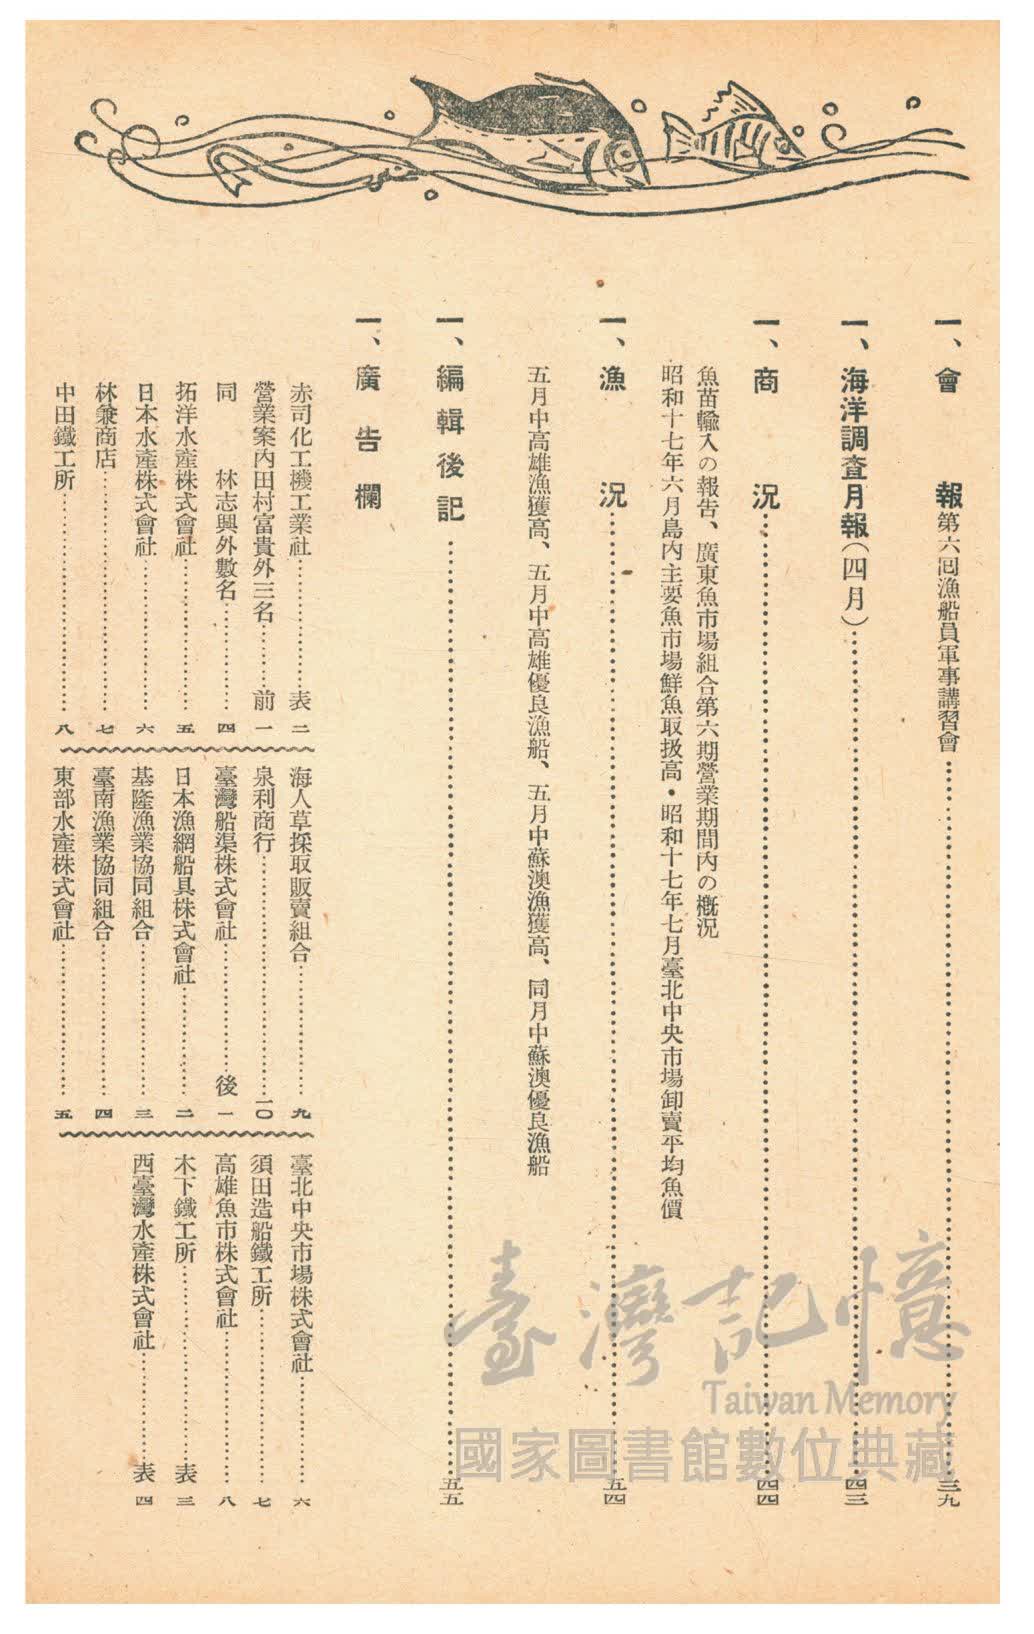 一、會報 第六囘漁船員軍事講習會……三九
一、海洋調査月報（四月）……四三
一、商況……四四
魚苗輸入の報告、廣東魚市場組合第六期營業期間內の槪況
昭和十七年六月島內主要魚市場鮮魚取扱高・昭和十七年七月臺北中央市場卸賣平均魚價
一、漁況……五四
五月中高雄漁獲高、五月中高雄優良漁船、五月中蘇澳漁獲高、同月中蘇澳優良漁船
一、編輯後記……五五
一、廣告欄
赤司化工機工業社……表二
營業案內田村富貴外三名……前一
同 林志興外數名……四
拓洋水產株式會社……五
日本水產株式會社……六
林兼商店……七
中田鐵工所……八
海人草採取販賣組合……九
泉利商行……一〇
臺灣船渠株式會社……後一
日本漁網船具株式會社……二
基隆漁業協同組合……三
臺南漁業協同組合……四
東部水產株式會社……五
臺北中央市場株式會社……六
須田造船鐵工所……七
高雄魚市株式會社……八
木下鐵工所……表三
西臺灣水產株式會社……表四
臺灣記憶
Taiwan Memory
國家圖書館數位典藏